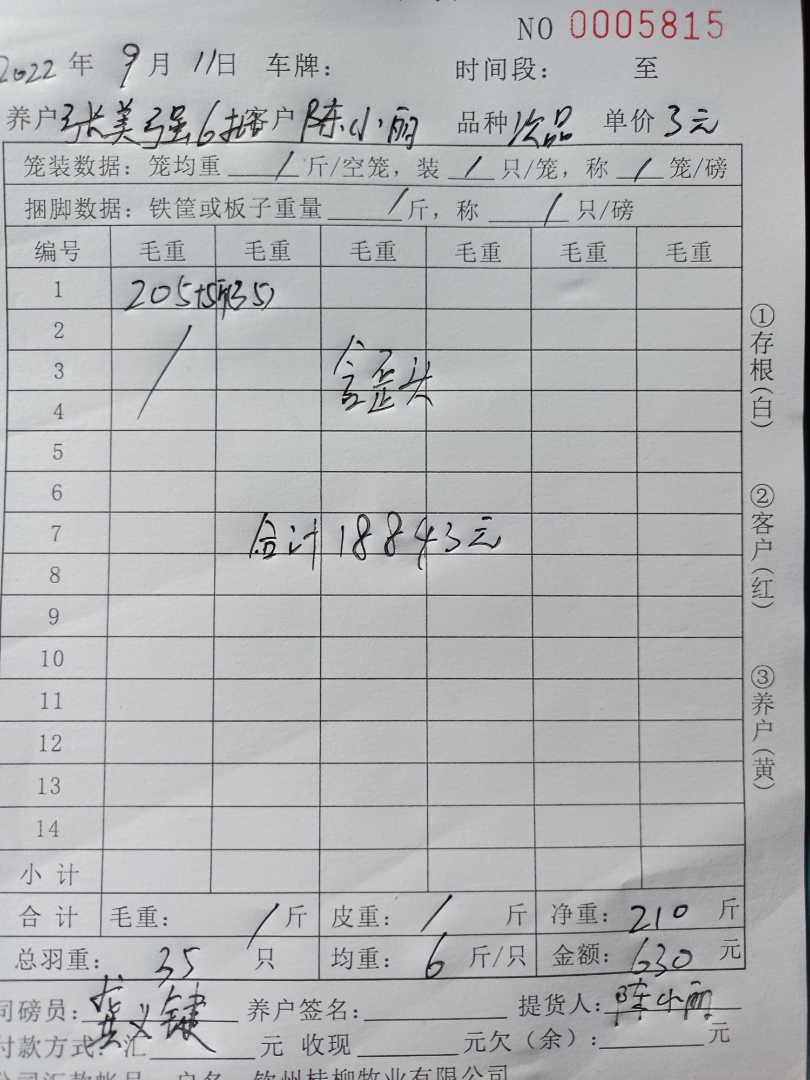 NO 0005815
2022 年 9 月 11日 车牌: 时间段: 至
养户 张美强6批 客户 陈小丽 品种 次品 单价 3元
笼装数据: 笼均重 / 斤/空笼, 装 / 只/笼, 称 / 笼/磅
捆脚数据: 铁筐或板子重量 / 斤, 称 / 只/磅
编号 毛重 毛重 毛重 毛重 毛重 毛重
1 205+5
2 /
3 含歪头
4
5
6
7 合计 18843元
8
9
10
11
12
13
14
小计
合计 毛重: / 斤 皮重: / 斤 净重: 210 斤
总羽重: 35 只 均重: 6 斤/只 金额: 630 元
司磅员: 龚义键 养户签名: 提货人: 陈小丽
付款方式: 汇 元 收现 元欠(余): 元
公司汇款帐号 户名 钦州桂柳牧业有限公司
①存根(白)
②客户(红)
③养户(黄)